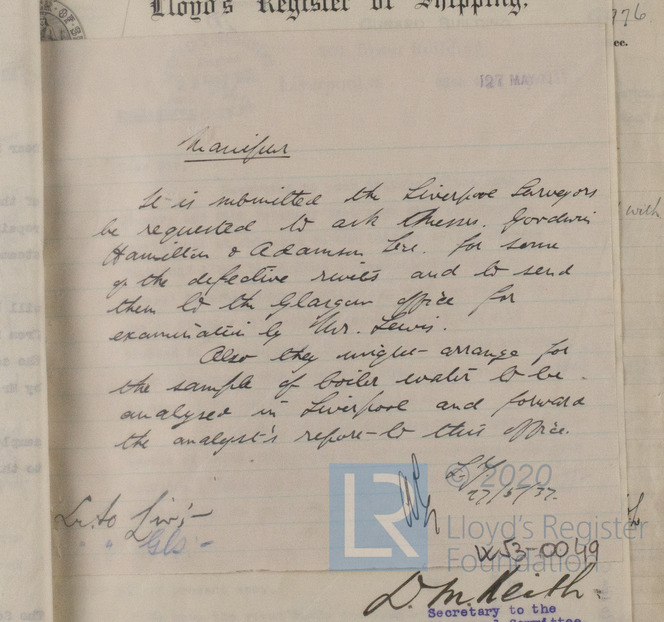 Lloyd's Register of Shipping.
776
ee.
127 MAY
Manipur
It is submitted the Liverpool Surveyors
be requested to ask Messrs. Goodwin
Hamilton & Adamson Ltd. for some
of the defective rivets and to send
them to the Glasgow office for
examination by Mr. Lewis.
Also they might arrange for
the sample of boiler water to be
analysed in Liverpool and forward
the analyst's report to this office.
with
27/5/37.
Lr. to Liv;-
" " Gls:-
LR
© 2020
Lloyd's Register
Foundation
W53-0049
D. M. Keith
Secretary to the
Committee